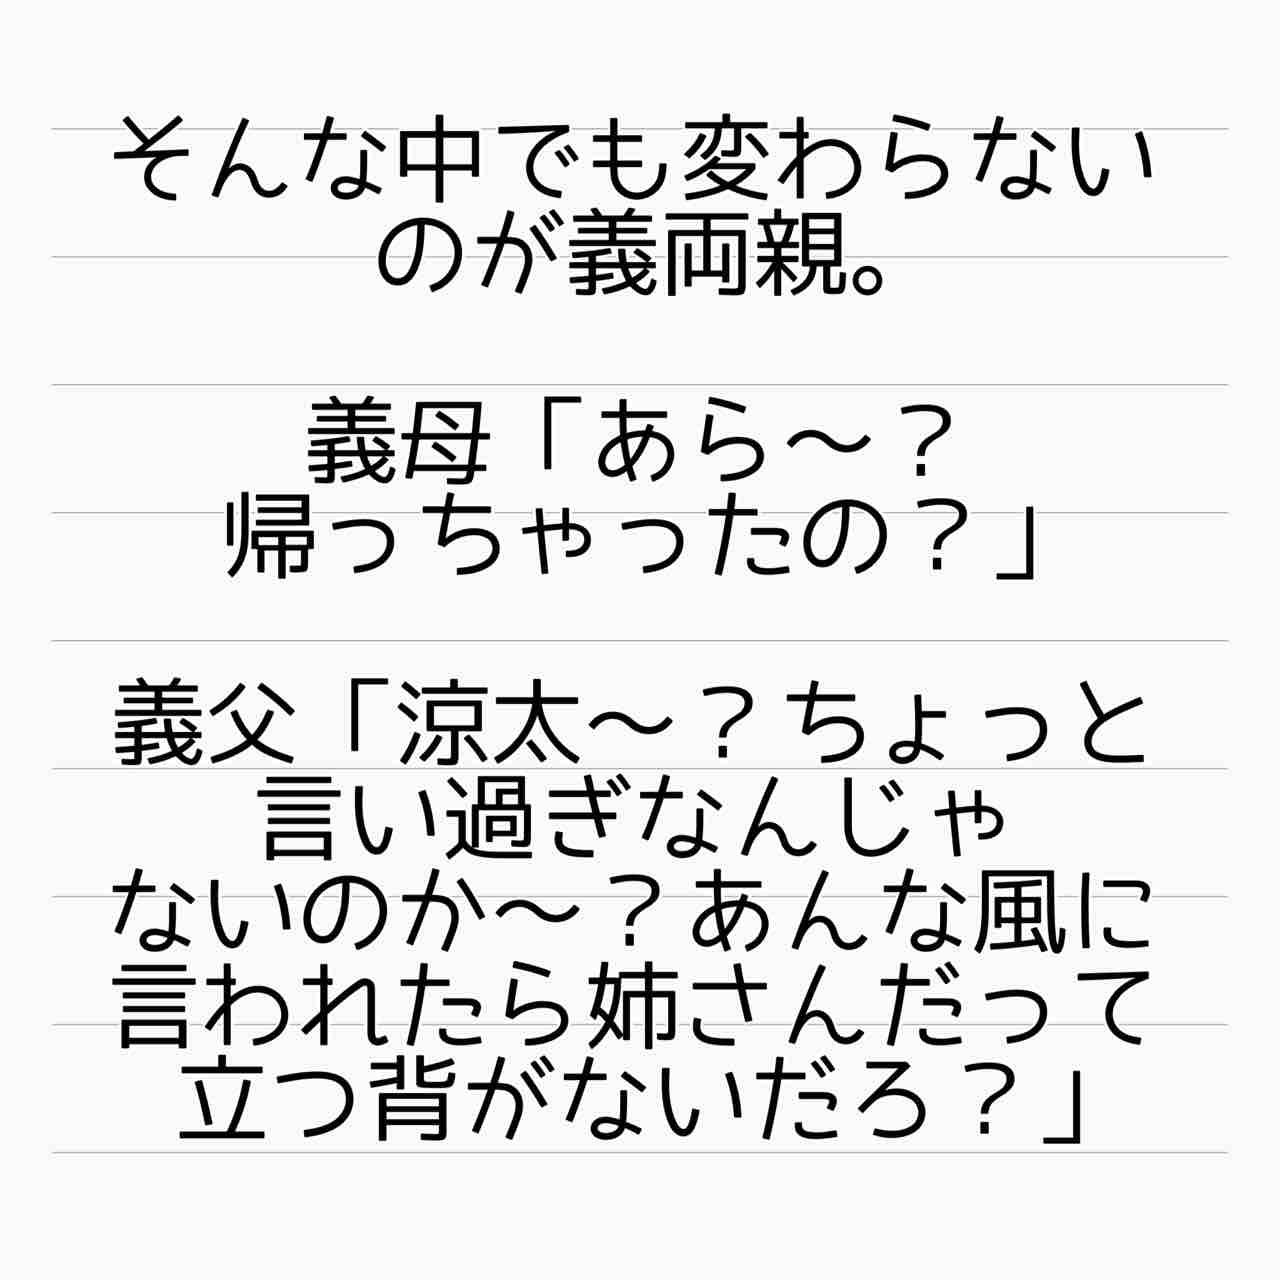 そんな中でも変わらない
のが義両親。
義母「あら〜？
帰っちゃったの？」
義父「涼太〜？ちょっと
言い過ぎなんじゃ
ないのか〜？あんな風に
言われたら姉さんだって
立つ背がないだろ？」